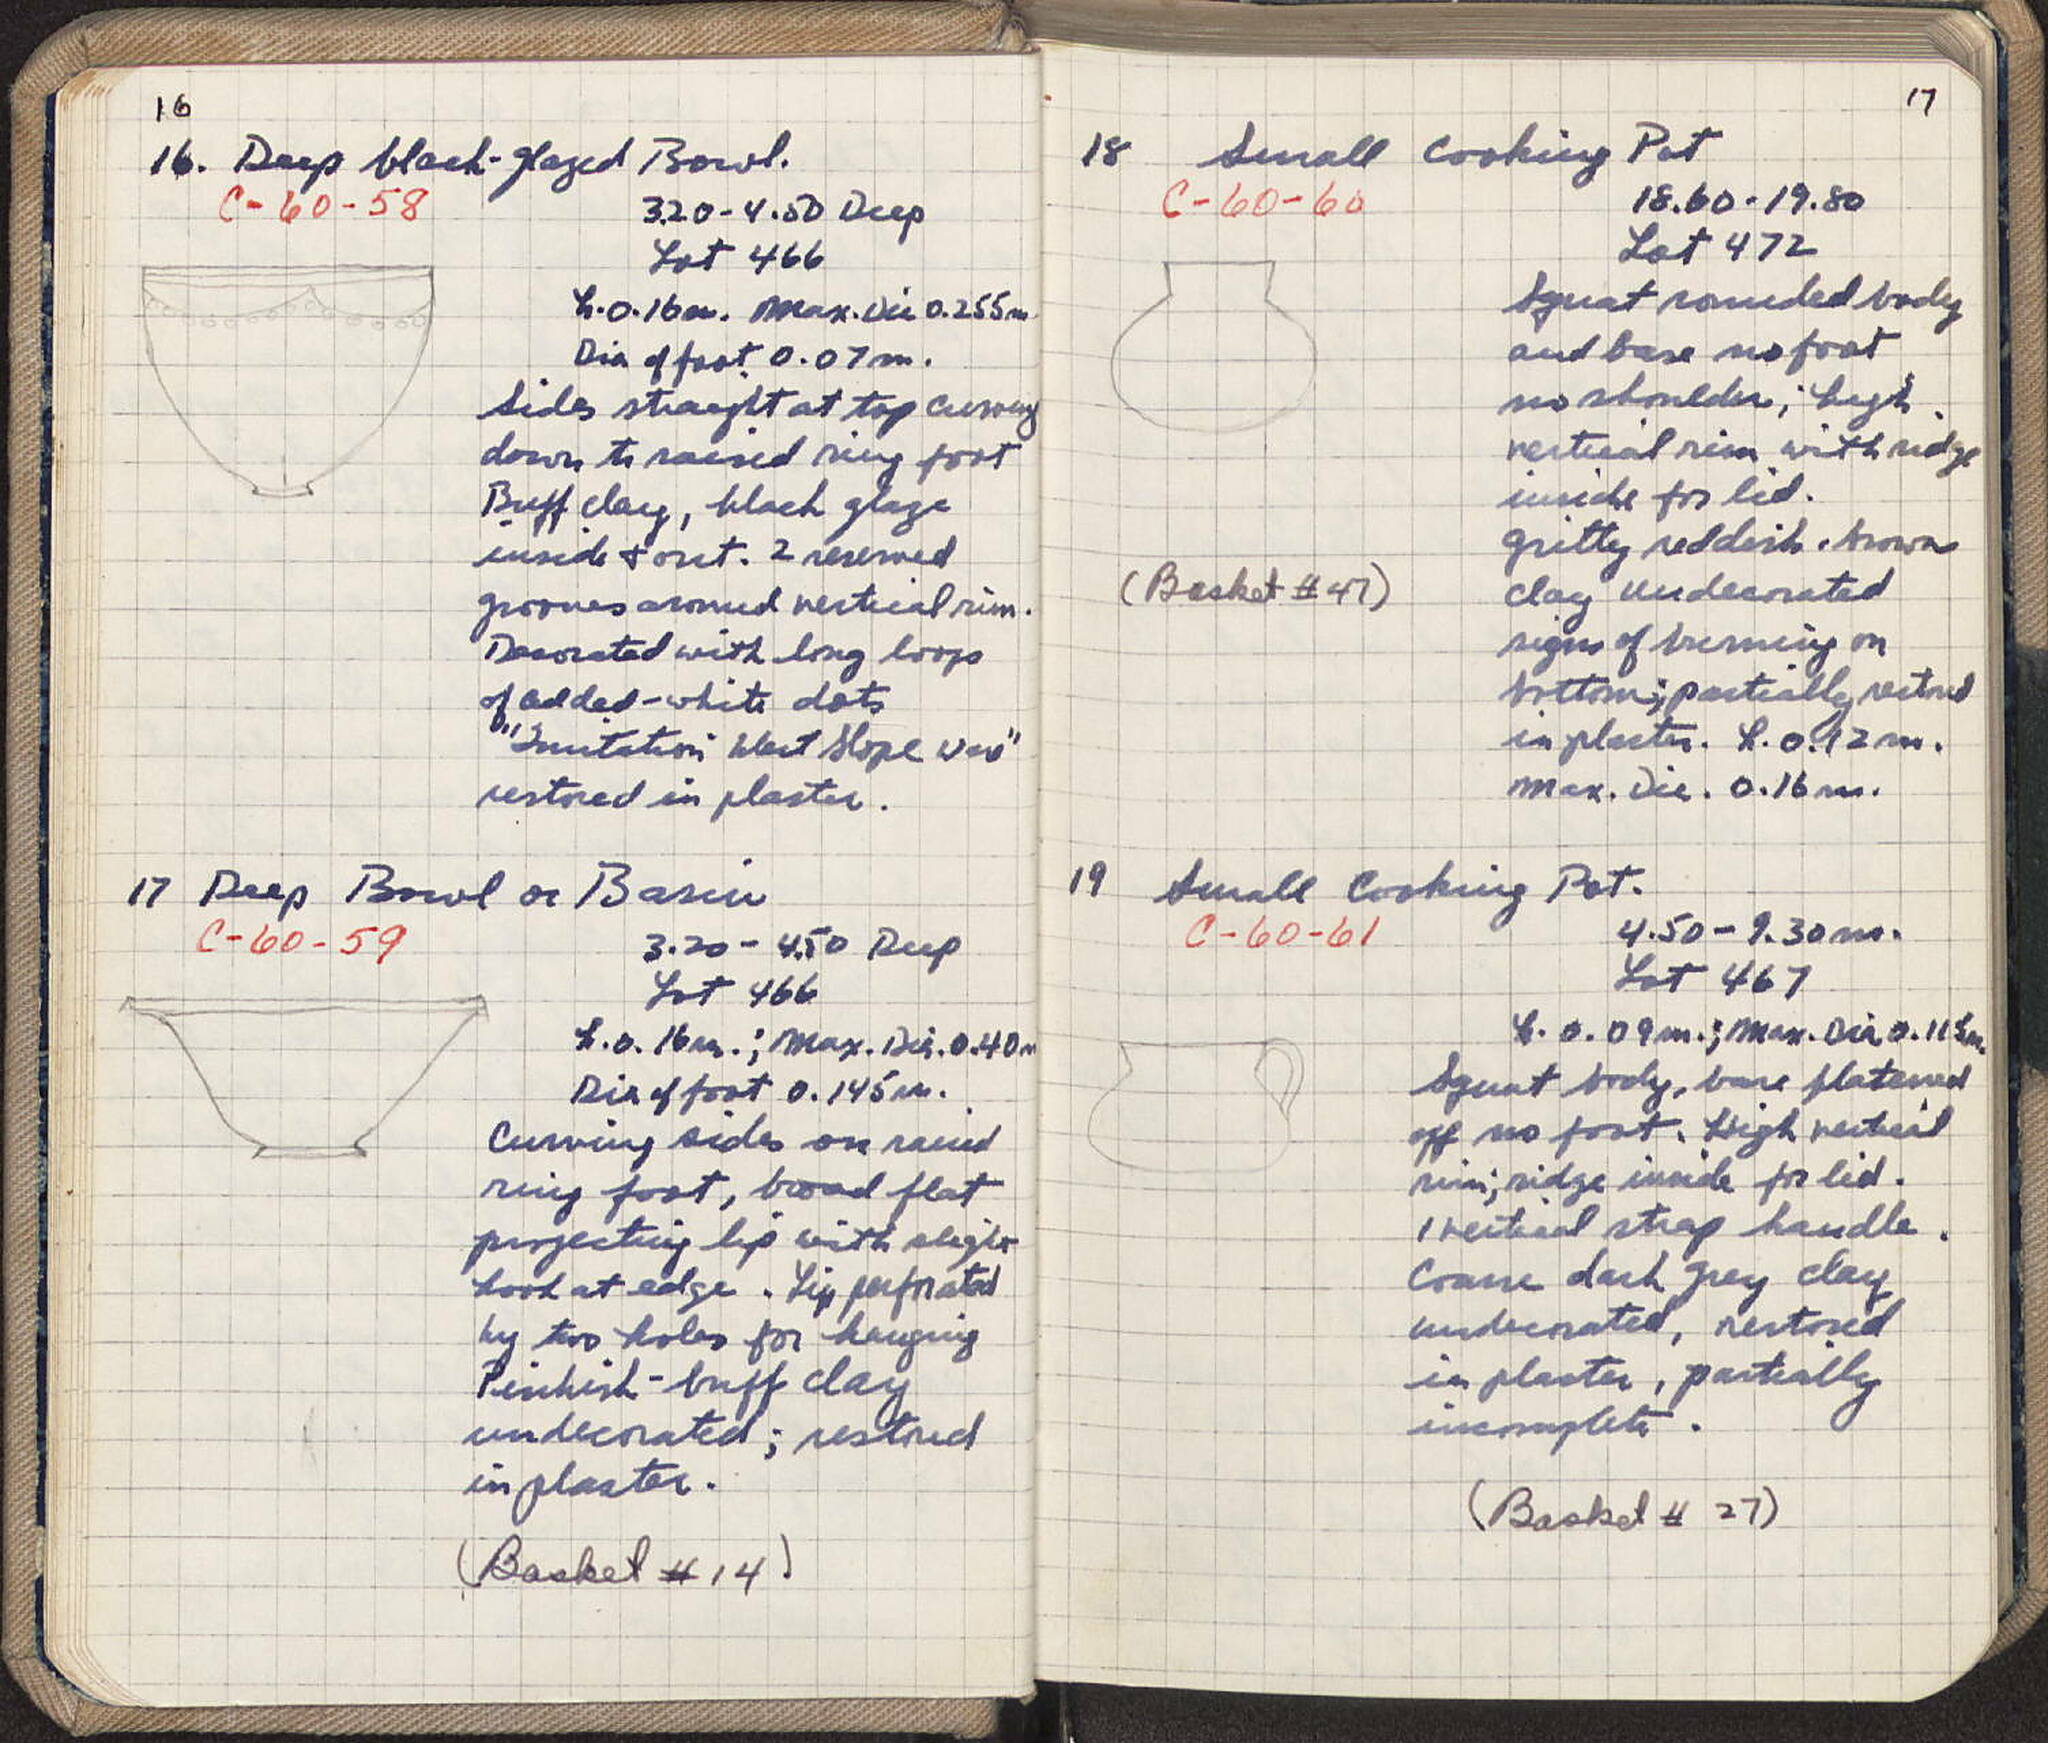 16
16. Deep black-glazed Bowl.
C-60-58
3.20-4.50 Deep
Lot 466
h.0.16m. Max. Dia 0.255m
Dia of foot 0.07m.
Sides straight at top curving
down to raised ring foot
Buff clay, black glaze
inside & out. 2 reserved
grooves around vertical rim.
Decorated with long loops
of added-white dots
"Imitation West Slope Ware"
restored in plaster.
17 Deep Bowl or Basin
C-60-59
3.20-4.50 Deep
Lot 466
h.0.16m.; Max. Dia. 0.40m
Dia of foot 0.145m.
Curving sides on raised
ring foot, broad flat
projecting lip with slight
hook at edge. Lip perforated
by two holes for hanging
Pinkish-buff clay
undecorated; restored
in plaster.
(Basket #14)
17
18 Small Cooking Pot
C-60-60
18.60-19.80
Lot 472
Squat rounded body
and base no foot
no shoulder; high
vertical rim with ridge
inside for lid.
gritty reddish-brown
(Basket #47)
clay undecorated
signs of burning on
bottom; partially restored
in plaster. h. 0.12m.
Max. Dia. 0.16m.
19 Small Cooking Pot.
C-60-61
4.50-9.30m.
Lot 467
h. 0.09m.; Max. Dia 0.115m.
Squat body, base flatened
off no foot. High vertical
rim; ridge inside for lid.
1 vertical strap handle.
Coarse dark grey clay
undecorated, restored
in plaster, partially
incomplete.
(Basket # 27)